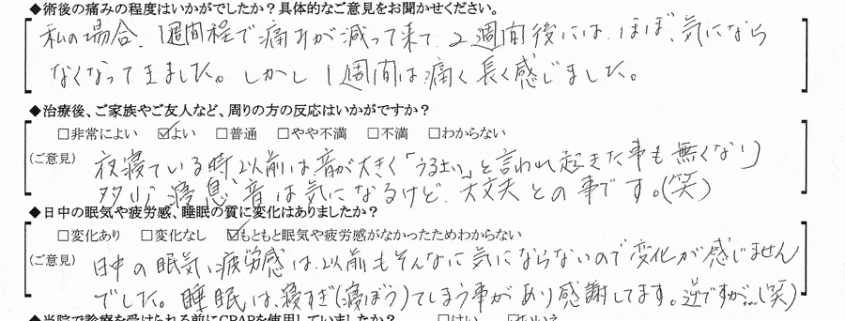 ◆術後の痛みの程度はいかがでしたか？具体的なご意見をお聞かせください。
私の場合、1週間程で痛みが減って来て、2週間後には、ほぼ、気になら
なくなってきました。しかし1週間は痛く長く感じました。
◆治療後、ご家族やご友人など、周りの方の反応はいかがですか？
□非常によい ☑よい □普通 □やや不満 □不満 □わからない
(ご意見) 夜寝ている時、以前は音が大きく「うるさい」と言われ起きた事も無くなり
多少、寝息、音は気になるけど、大丈夫との事です。(笑)
◆日中の眠気や疲労感、睡眠の質に変化はありましたか？
□変化あり □変化なし ☑もともと眠気や疲労感がなかったためわからない
(ご意見) 日中の眠気、疲労感は、以前もそんなに気にならないので変化が感じません
でした。睡眠は、寝すぎ(寝ぼう)てしまう事があり感謝してます。逆ですが…(笑)
◆当院で診療を受けられる前にCPAPを使用していましたか？ □はい ☑いいえ